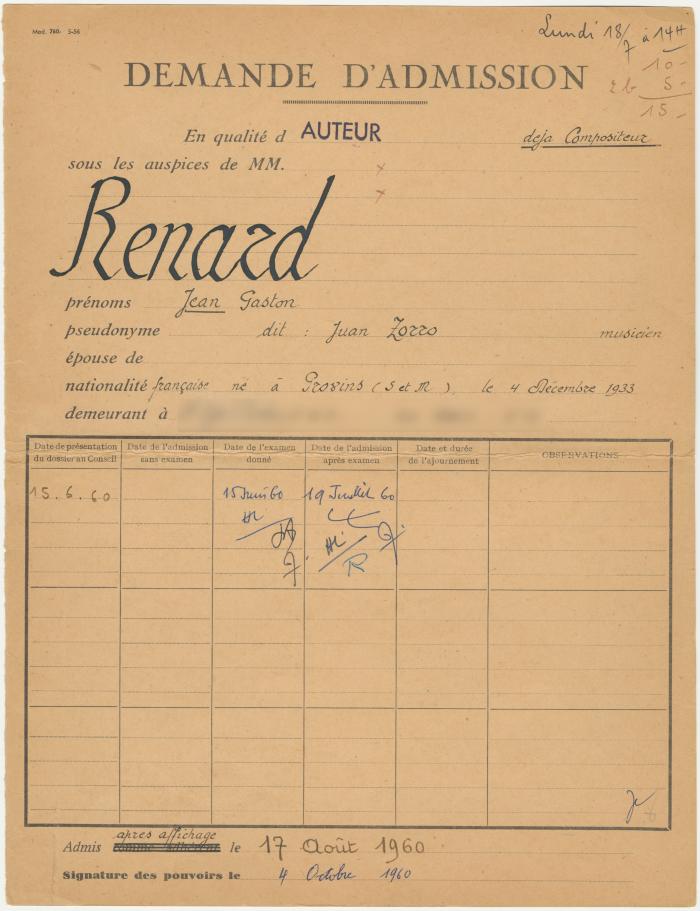 Mod. 760. 5-56
Lundi 18/7 à 14H
10 -
5 -
15 -
DEMANDE D'ADMISSION
En qualité d AUTEUR deja Compositeur
sous les auspices de MM.
x
x
Renard
prénoms Jean Gaston
pseudonyme dit : Juan Zorro musicien
épouse de
nationalité française né à Provins (S et M), le 4 Décembre 1933
demeurant à
Date de présentation du dossier au Conseil
Date de l'admission sans examen
Date de l'examen donné
Date de l'admission après examen
Date et durée de l'ajournement
OBSERVATIONS
15.6.60 15 Juin 60 19 Juillet 60
R
après affichage
Admis comme adhérent le 17 Août 1960
Signature des pouvoirs le 4 Octobre 1960